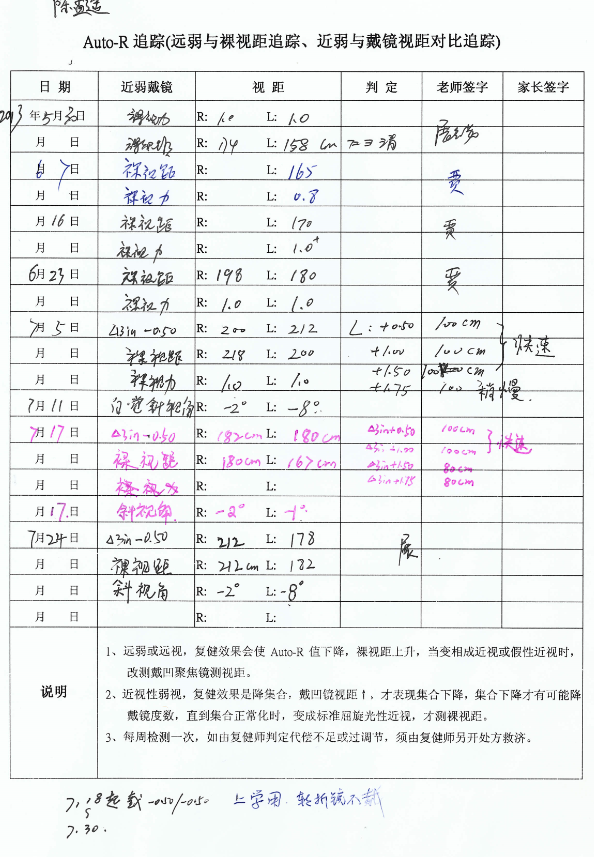 Auto-R 追踪(远弱与裸视距追踪、近弱与戴镜视距对比追踪)
日 期 近弱戴镜 视 距 判 定 老师签字 家长签字
2013年5月30日 裸视力 R: 1.0 L: 1.0
月 日 裸视距 R: 174 L: 158 cm
6月7日 裸视距 R: L: 165 贾
月 日 裸视力 R: L: 0.8
月16日 裸视距 R: L: 170 贾
月 日 裸视力 R: L: 1.0+
6月23日 裸视距 R: 198 L: 180 贾
月 日 裸视力 R: 1.0 L: 1.0
7月5日 △3in-0.50 R: 200 L: 212 L: +0.50 100cm
月 日 裸视距 R: 218 L: 200 +1.00 100cm 快速
月 日 裸视力 R: 1.0 L: 1.0 +1.50 100cm
+1.75 100 稍慢
7月11日 斜视角 R: -2° L: -8°
7月17日 △3in-0.50 R: 182cm L: 180cm △3in+0.50 100cm
月 日 裸视距 R: 180cm L: 167cm △3in+1.00 100cm 快速
△3in+1.50 80cm
月 日 裸视力 R: L: △3in+1.75 80cm
月17日 斜视角 R: -2° L: -1°
7月24日 △3in-0.50 R: 212 L: 178
月 日 裸视距 R: 212cm L: 182
月 日 斜视角 R: -2° L: -8°
月 日 R: L:
说明
1、远弱或远视，复健效果会使 Auto-R 值下降，裸视距上升，当变相成近视或假性近视时，
改测戴凹聚焦镜测视距。
2、近视性弱视，复健效果是降集合，戴凹镜视距↑，才表现集合下降，集合下降才有可能降
戴镜度数，直到集合正常化时，变成标准屈旋光性近视，才测裸视距。
3、每周检测一次，如由复健师判定代偿不足或过调节，须由复健师另开处方救济。
7.18起戴-050/-050 上学用.转折镜不戴
5
7.30.